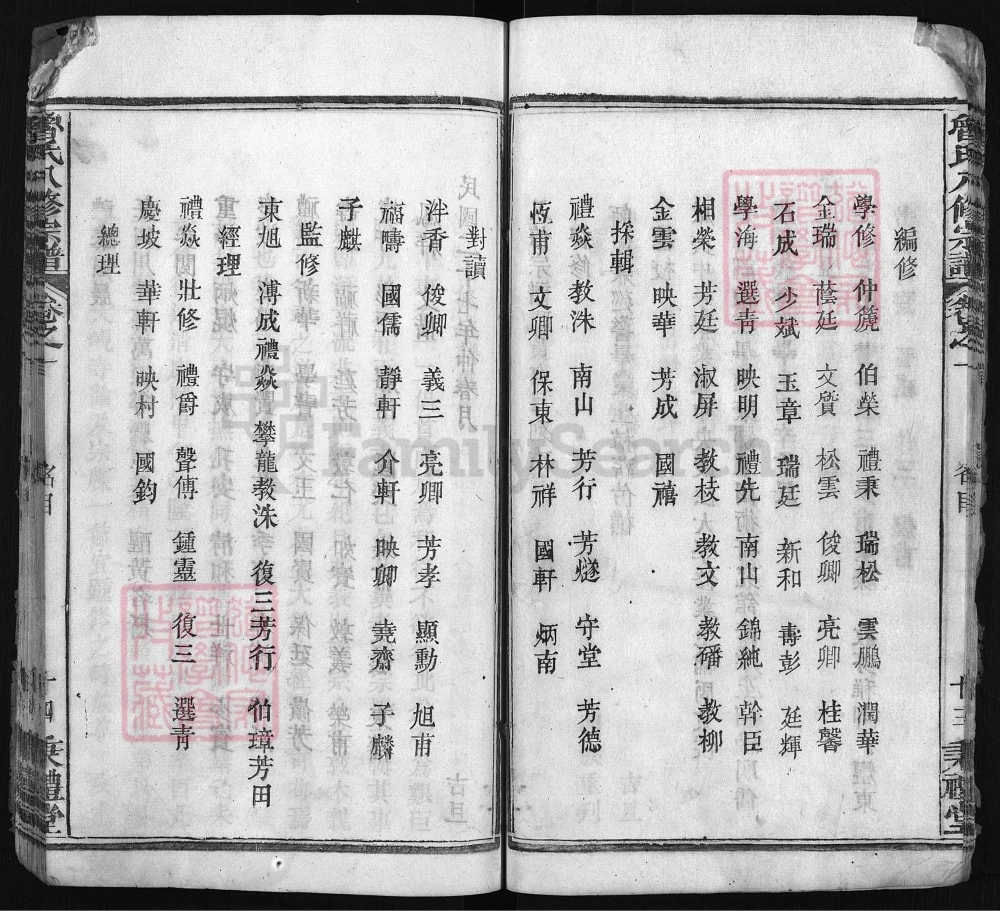 曾氏八修宗譜 卷之一 名目 十三 秉禮堂
編修
學修 仲篪 伯榮 禮秉 瑞松 雲鵬 潤華
金瑞 蔭廷 文質 松雲 俊卿 亮卿 桂馨
石成 少斌 玉章 瑞廷 新和 壽彭 廷輝
學海 選青 映明 禮先 南山 錦純 幹臣
相榮 芳廷 淑屏 教枝 教文 教磻 教柳
金雲 映華 芳成 國禧
採輯
禮焱 教洙 南山 芳行 芳燧 守堂 芳德
恆甫 文卿 保東 林祥 國軒 炳南
對讀
泮香 俊卿 義三 亮卿 芳孝 顯勳 旭甫
福疇 國儒 靜軒 介軒 映卿 堯齋 子麟
子麒
監修
東旭 溥成 禮焱 攀龍 教洙 復三 芳行 伯璋 芳田
經理
禮焱 壯修 禮爵 聲傳 鍾靈 復三 選青
慶坡 華軒 映村 國鈞
總理
曾氏八修宗譜 卷之一 名目 十四 秉禮堂
FamilySearch